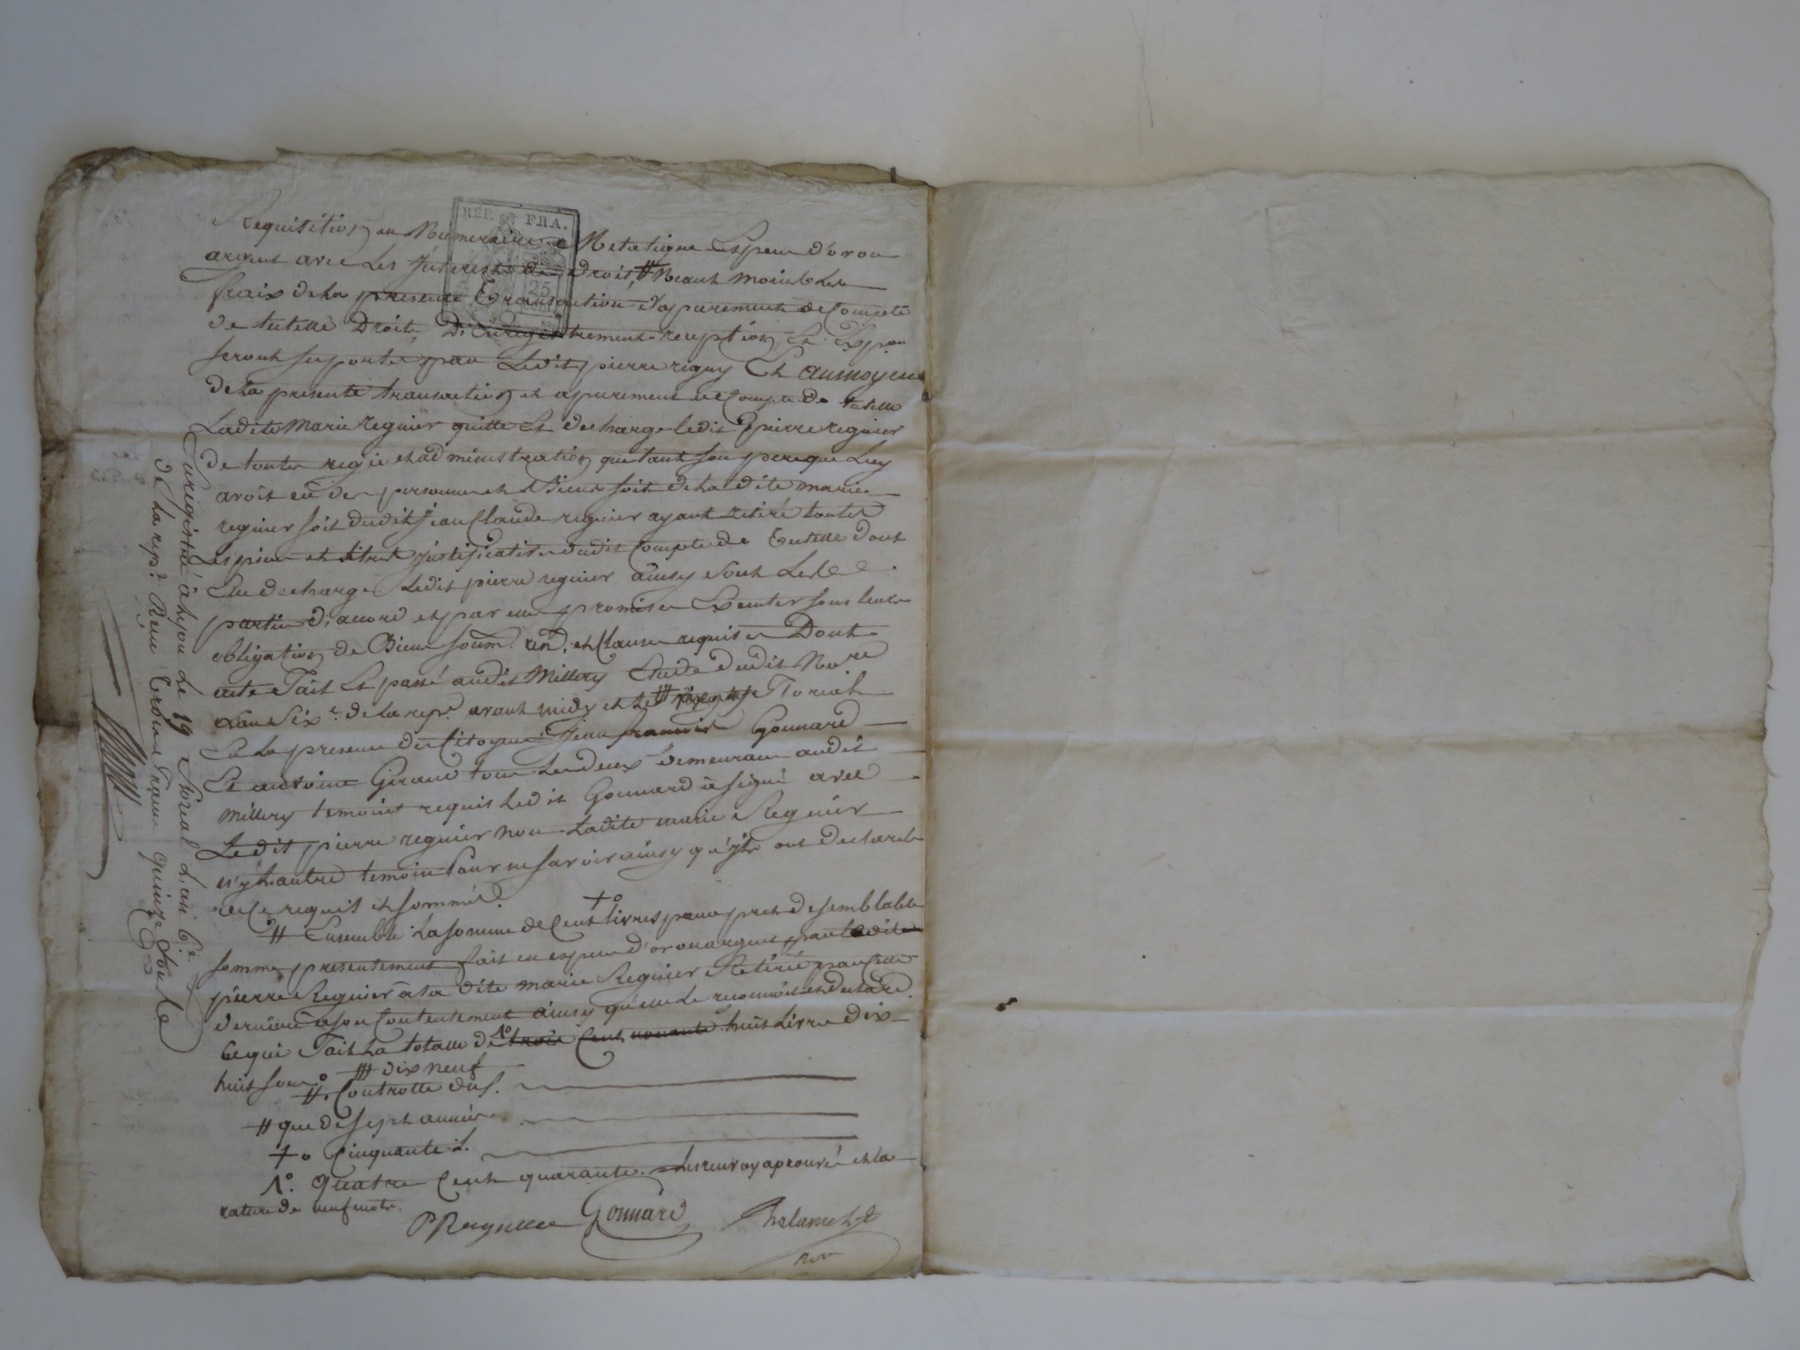 REP. FRA.
25
Requisition en Numeraire Metalique Espece d'or ou
argent avec Les Juterests de Droit, # Neant moins Les
fraix de La presente Transaction d'apurement de Compte
de tutelle Droits, D'Enregistrement reception Et Exp.on
seront suportes par Ledit pierre reguy Et aumoyen
de La presente transaction et apurement de Compte de tutelle
Ladite Marie Regnier quitte Et decharge ledit pierre regnier
de toute regie et administration que tant son pere que Luy
avoit eu des personnes et Biens soit de La dite marie
regnier soit dudit Jean Claude regnier ayant retiré toutes
Les pieces et titres justificatives dudit Compte de Tutelle Dont
Elle decharge Ledit pierre regnier ainsy sont Les
parties d'accord et par elles promises Executer sous leurs
obligation de Biens soum. ren. et Clauses requises Dont
acte Fait Et passé audit Millery Etude dudit No.re
L'an Six.e de La rep.e avant midy et Le # Floreal
En La presence des Citoyens Jean francois Gonnard
Et antoine Giraud tous Les deux Demeurans audit
millery temoins requis Ledit Gonnard à signé avec
Ledit pierre regnier non Ladite marie Regnier
n'y L'autre temoin Pour ne savoir ainsy qu'ils ont Declaré
de ce requis et sommés.
+o
# Ensemble La somme de Cent Livres pour pret de semblable
somme presentement fait en especes d'or ou argent par Ledit
pierre Regnier à La dite marie Regnier Retirée par cette
derniere à son Contentement ainsy qu'elle Le reconnoit et declare.
Ce qui Fait La totalle de 1o trois Cent nonante huit Livres dix
huit sous. # dix neuf
# Controlle dus.
# que de sept années
+o Cinquante L.
1o. Quatre Cent quarante. Les renvoy aprouvé et La
rature de neuf mots.
P Regnier Gonnard Chalamet
no.re
Enregistré à Lyon Le 19 floreal L'an 6.e
de La rep.e Reçu Trois francs quinze sous